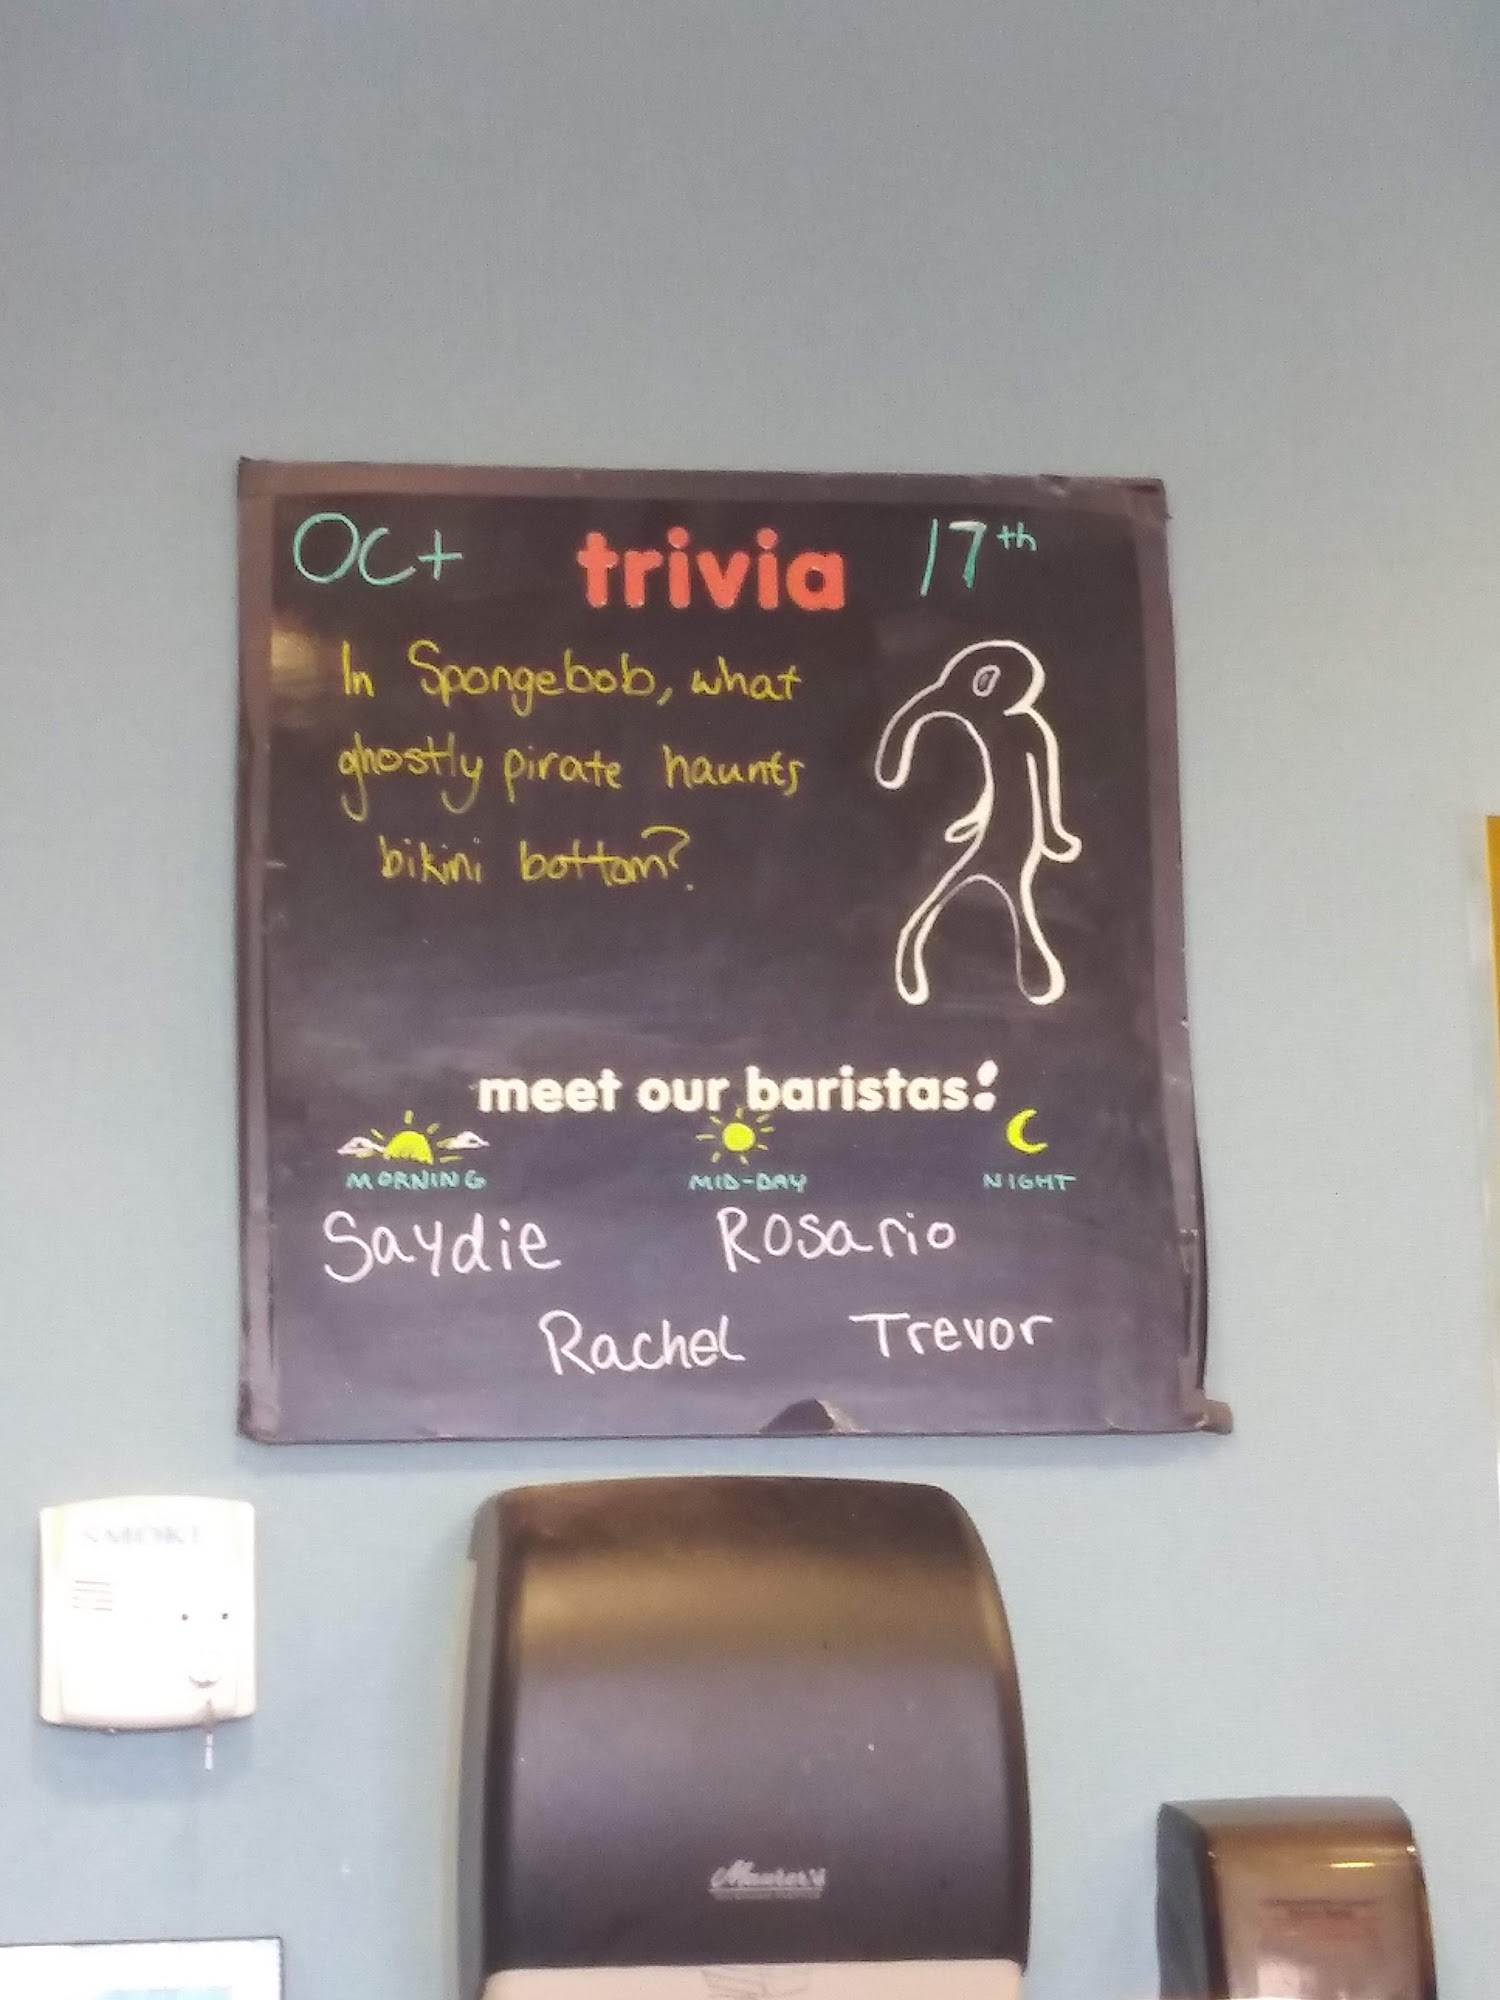 Oct trivia 17th
In Spongebob, what
ghostly pirate haunts
bikini bottom?
meet our baristas:
MORNING MID-DAY NIGHT
Saydie Rosario
Rachel Trevor
SMOKE
Maurer's